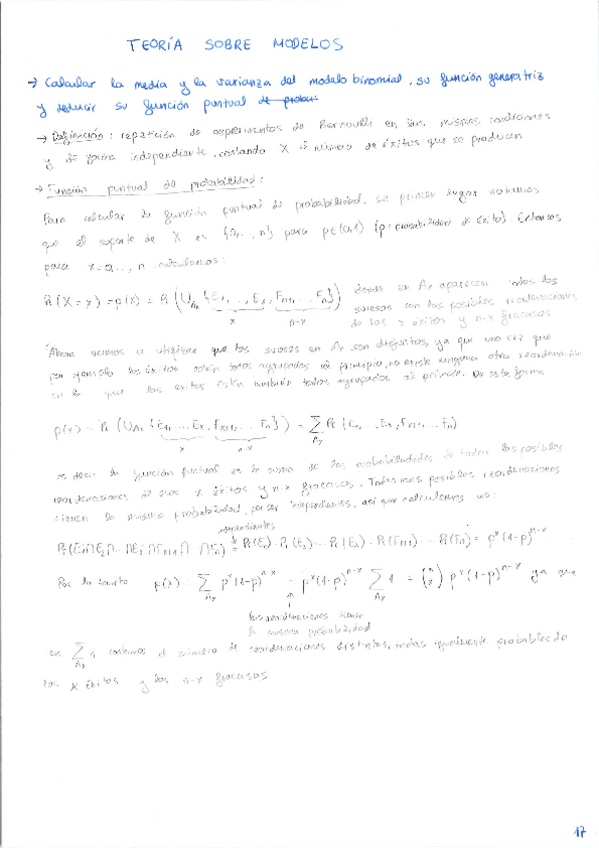 TEORÍA SOBRE MODELOS
→ Calcular la media y la varianza del modelo binomial, su función generatriz
y deducir su función puntual de probab.
→ Definición: repetición de experimentos de Bernoulli en las mismas condiciones
y de forma independiente, contando X el número de éxitos que se producen
→ Función puntual de probabilidad:
Para calcular la función puntual de probabilidad, en primer lugar
que el soporte de X es {0,..., n} para p∈(0,1) (p = probabilidad de éxito). Entonces
para x=0,..., n calculamos:
Pr(X=x) = p(x) = Pr(∪Ax {E1, ..., Ex, Fx+1, ... Fn}) donde en Ax aparecen todos los
x n-x
sucesos con las posibles reordenaciones
de los x éxitos y n-x fracasos
Ahora vamos a utilizar que los sucesos en Ax son disjuntos, ya que una vez que
por ejemplo los éxitos están todos agrupados al principio, no existe ninguna otra reordenación
en la que los éxitos estén también todos agrupados al principio. De esta forma
p(x) = Pr(∪Ax {E1, ... Ex, Fx+1, ... Fn}) = ∑Ax Pr(E1, ... Ex, Fx+1, ... Fn)
x n-x
es decir la función puntual es la suma de las probabilidades de todas las posibles
reordenaciones de esos x éxitos y n-x fracasos. Todas esas posibles reordenaciones
tienen la misma probabilidad, por ser independientes, así que calculamos una:
independientes
Pr(E1∩E2∩...∩Ex∩Fx+1∩...∩Fn) = Pr(E1)·Pr(E2)·...·Pr(Ex)·Pr(Fx+1)·...·Pr(Fn) = p^x (1-p)^n-x
Por lo tanto p(x) = ∑Ax p^x (1-p)^n-x = p^x (1-p)^n-x ∑Ax 1 = (n x) p^x (1-p)^n-x ya que
las reordenaciones tienen
la misma probabilidad
en ∑Ax 1 contamos el número de reordenaciones distintas, todas igualmente probables de
los x éxitos y los n-x fracasos
17